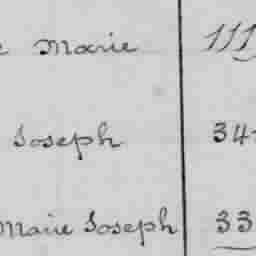 e Marie 111
Joseph 34
Marie Joseph 33